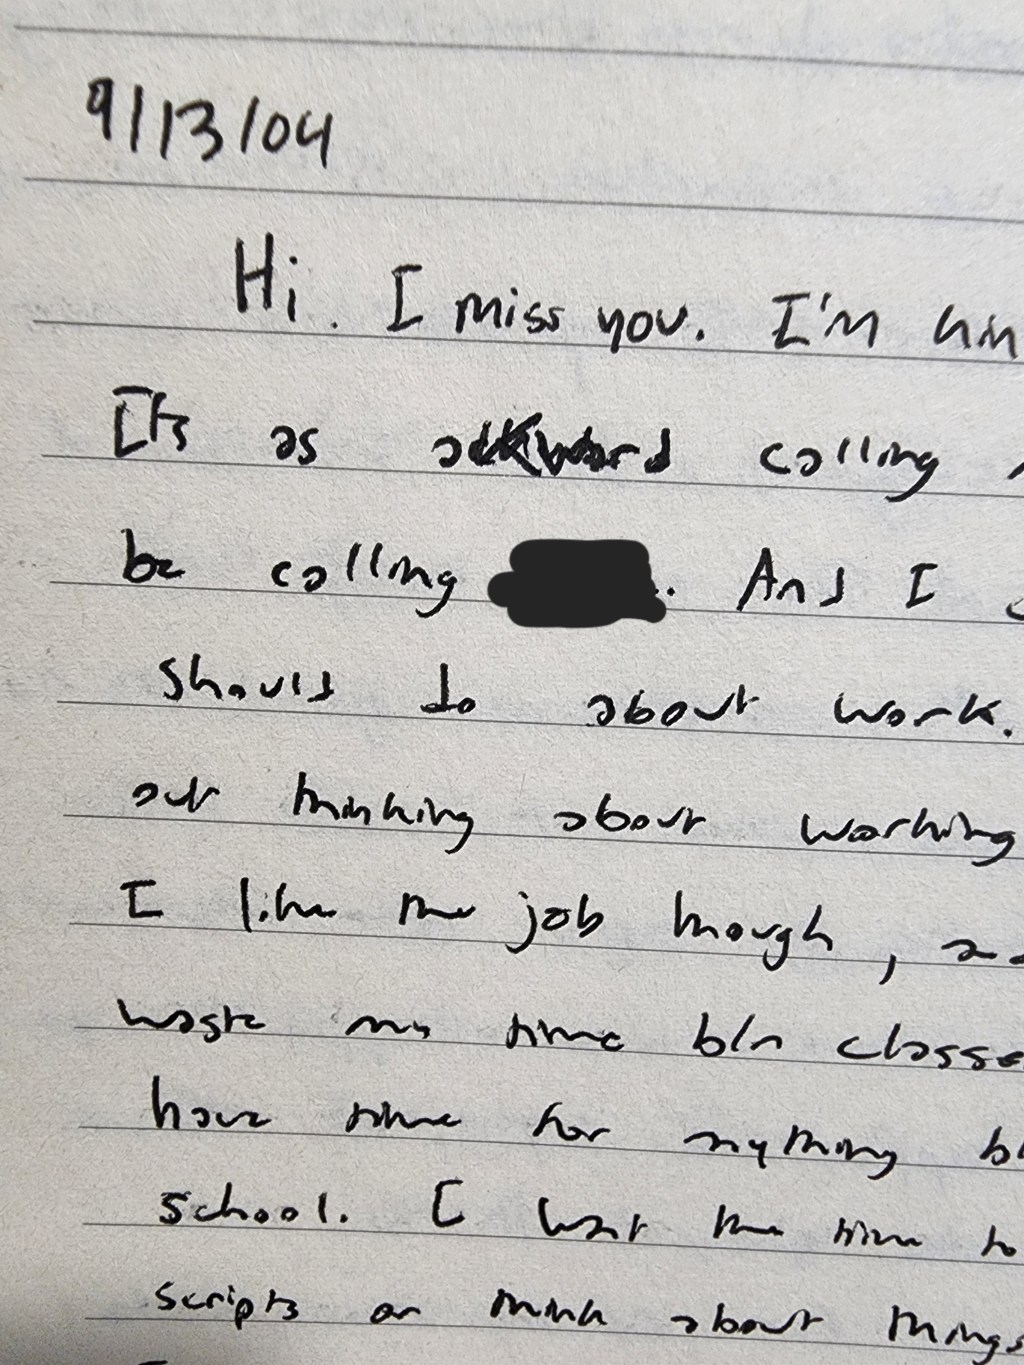 9/13/04
Hi. I miss you. I'm
Its as awkward calling
be calling . And I
should do about work.
out thinking about working
I like the job though,
waste my time b/n classes
have time for anything
school. I want the time to
scripts or think about things